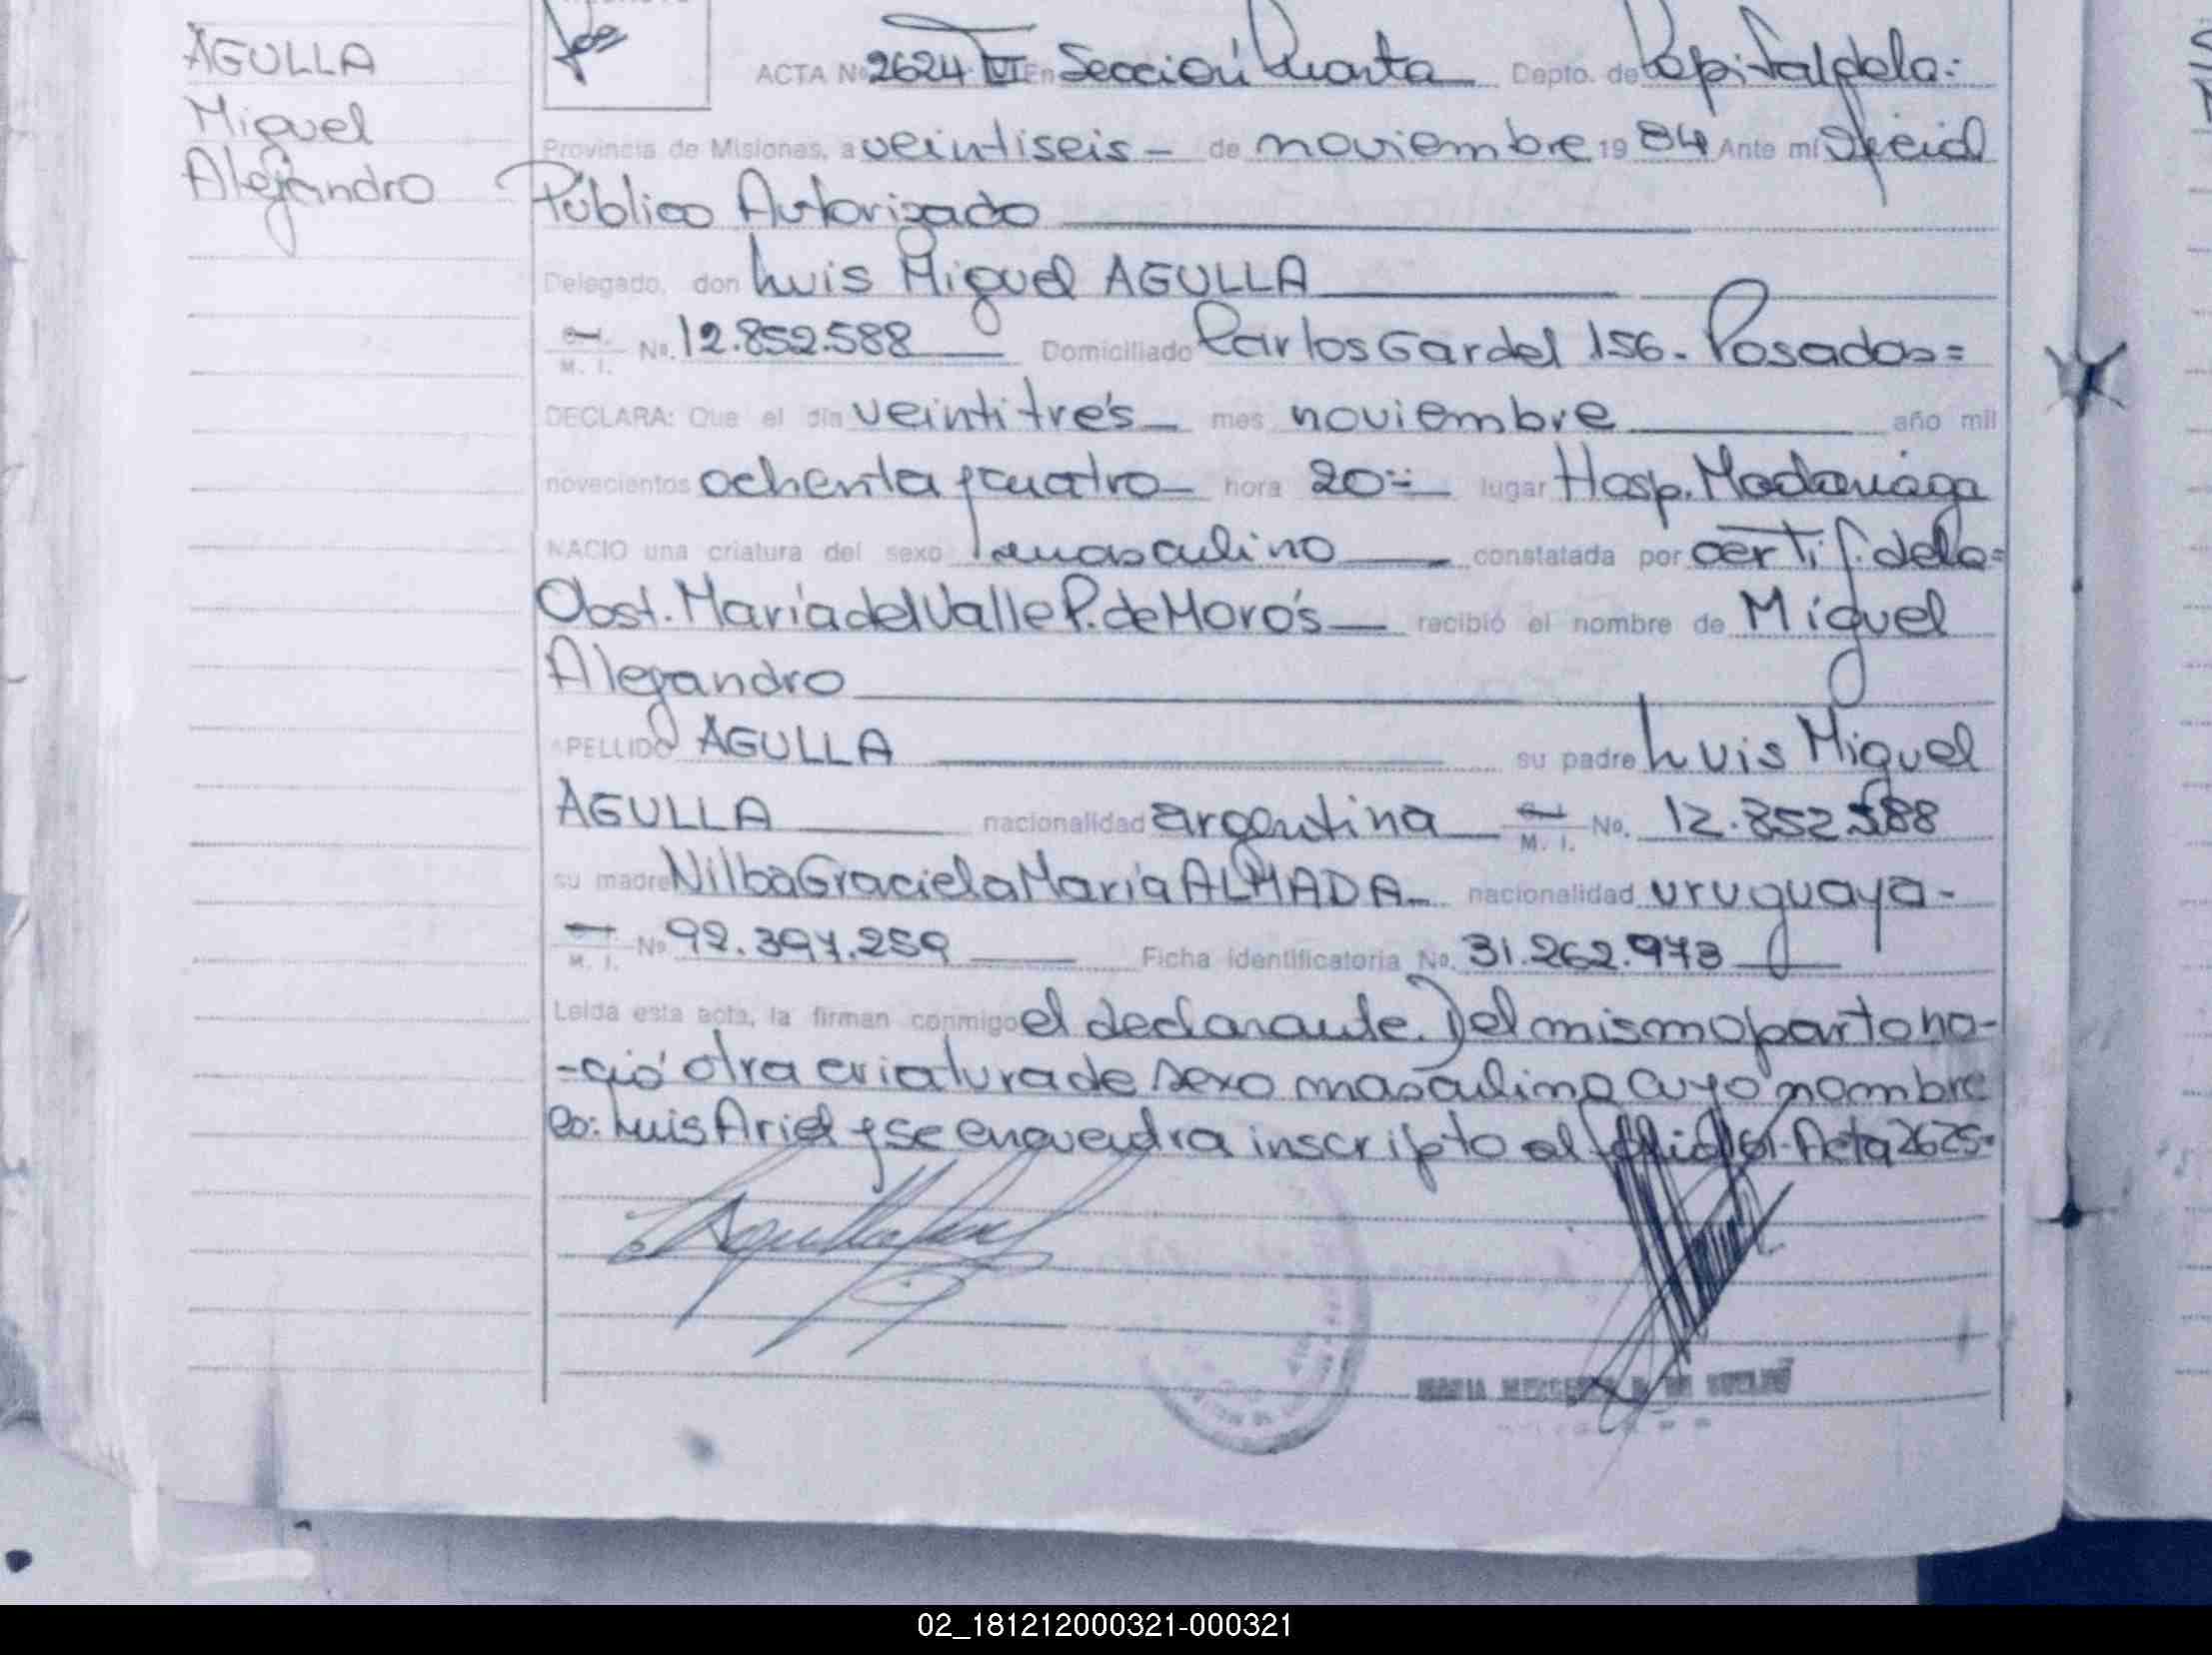 AGULLA
Miguel
Alejandro
ACTA Nº 2624 TVI En Sección Cuarta Depto. de Capital de la=
Provincia de Misiones, a veintiseis - de noviembre 1984 Ante mí Oficial
Público Autorizado
Delegado, don Luis Miguel AGULLA
M. I. No. 12.852.588 Domiciliado Carlos Gardel 156. Posadas=
DECLARA: Que el día veintitrés mes noviembre año mil
novecientos ochenta y cuatro hora 20 lugar Hosp. Madariaga
NACIO una criatura del sexo masculino constatada por certif. de la=
Obst. María del Valle P. de Morós recibió el nombre de Miguel
Alejandro
APELLIDO AGULLA su padre Luis Miguel
AGULLA nacionalidad argentina M. I. No. 12.852.588
su madre Nilba Graciela María ALMADA nacionalidad uruguaya-
M. I. Nº 92.397.259 Ficha identificatoria No. 31.262.973
Leída esta acta, la firman conmigo el declarante. Del mismo parto na-
-ció otra criatura de sexo masculino cuyo nombre
es: Luis Ariel y se encuentra inscripto al folio Acta 2625-
MARIA
02_181212000321-000321